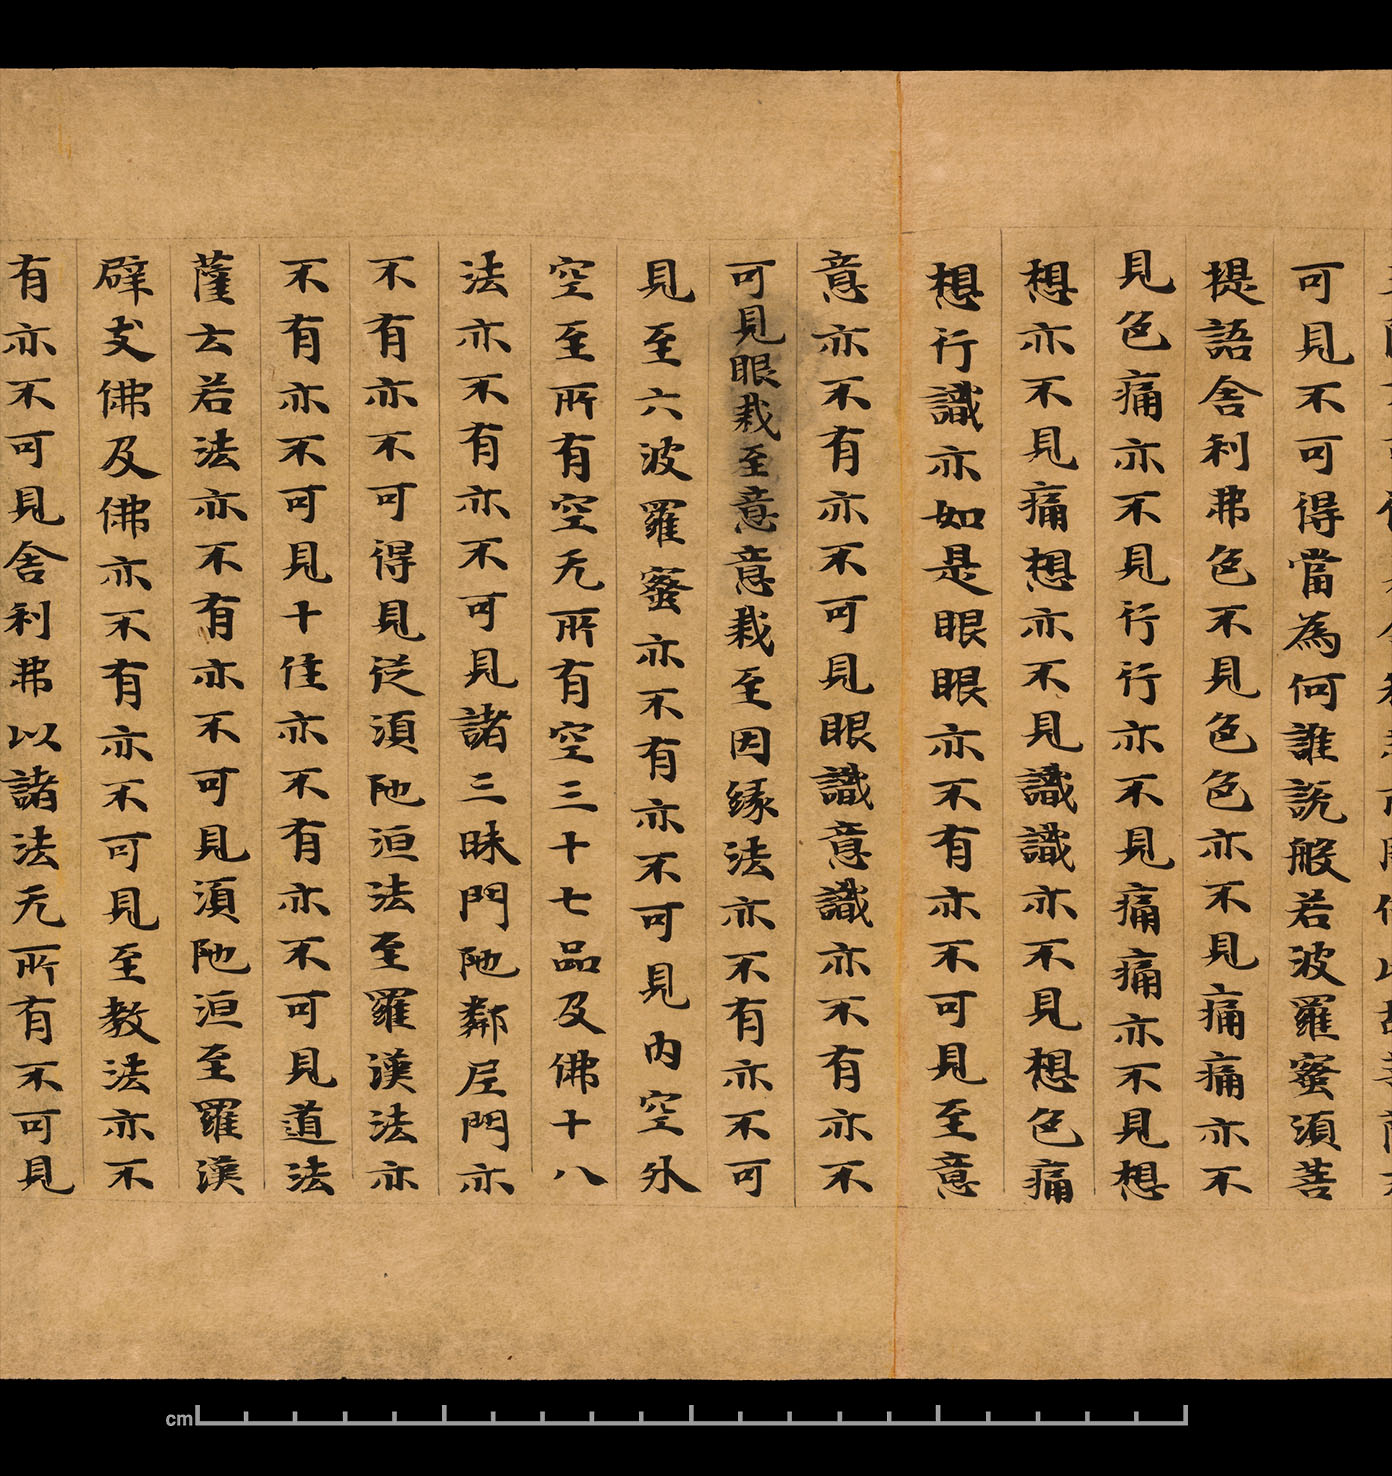 可見不可得當為何誰說般若波羅蜜須菩
提語舍利弗色不見色色亦不見痛痛亦不
見色痛亦不見行行亦不見痛痛亦不見想
想亦不見痛想亦不見識識亦不見想色痛
想行識亦如是眼眼亦不有亦不可見至意
意亦不有亦不可見眼識意識亦不有亦不
可見眼栽至意意栽至因緣法亦不有亦不可
見至六波羅蜜亦不有亦不可見內空外
空至所有空无所有空三十七品及佛十八
法亦不有亦不可見諸三昧門陁鄰尼門亦
不有亦不可得見從須陁洹法至羅漢法亦
不有亦不可見十住亦不有亦不可見道法
薩云若法亦不有亦不可見須陁洹至羅漢
辟支佛及佛亦不有亦不可見至教法亦不
有亦不可見舍利弗以諸法无所有不可見
cm